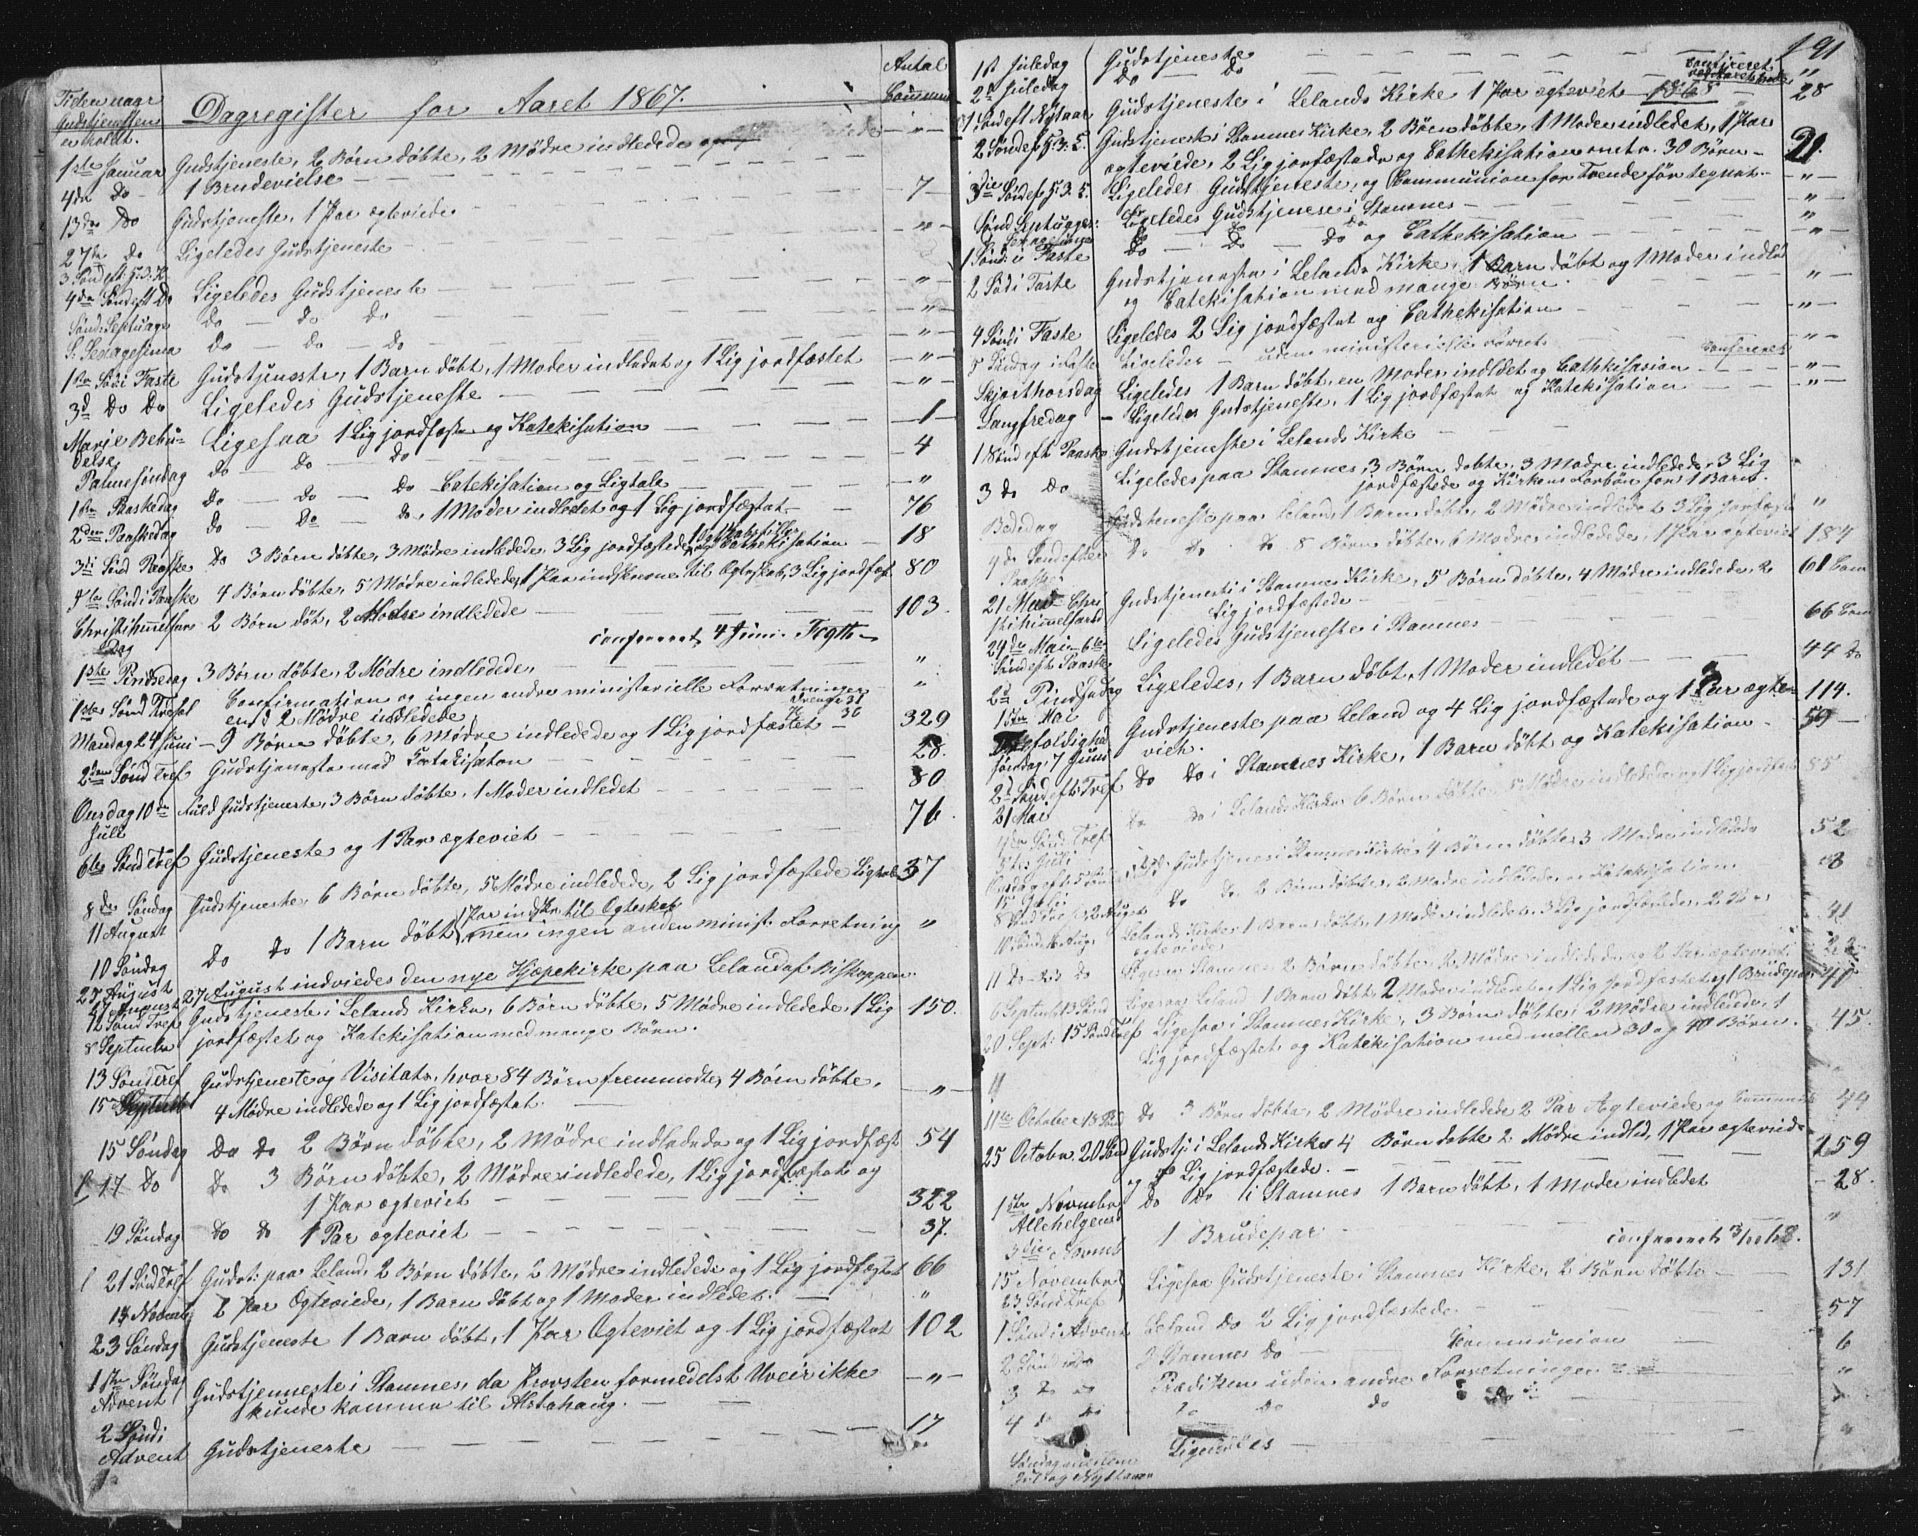 Tiden naar
Gudstjenesten
er holdt.
Dagregister for Aaret 1867.
Antal
Commun
1ste Januar Gudstjeneste, 2 Børn døbte, 2 Mødre indledede og — " —
4de Do 1 Brudevielse — 7 —
13de Do Gudstjeneste, 1 Par ægteviede — " —
27de Do Ligeledes Gudstjeneste —
3 Sønd eft H. 3. K.
4de Sønd eft Do Ligeledes Gudstjeneste — " —
Sønd: Septuages Do — Do Do — " —
S. Sexagesima Do — Do Do — " —
1ste Sø i Faste Gudstjeneste, 1 Barn døbt, 1 Moder indledet og 1 Lig jordfæstet — " —
3d Do Do Ligeledes Gudstjeneste — " —
Marie Bebu- Ligesaa 1 Lig jordfæst og Katekisation — 1 —
delse
Palmesøndag Do — Do — Do — 4
1ste Paaskedag Do — Do — Do Catekisation og Ligtale — " —
2den Paaskedag Do — Do — Do, 1 Moder indledet og 1 Lig jordfæstet — 76
3die Sønd Paaske Do 3 Børn døbte, 3 Mødre indledede, 3 Lig jordfæstede og Cathekisation — 18
Sønd i Paaske 4 Børn døbte, 5 Mødre indledede, 1 Par indskrevne til Ægteskab, 3 Lig jordfæst 80
Christi himmelfarts 2 Børn døbt, 2 Mødre indledede — 103.
Dag
confereret 4 Juni. Frgtt
1ste Pindsedag 3 Børn døbte, 2 Mødre indledede, — "
1ste Sønd Trefol Confirmation og ingen andre ministerielle Forretninger "
end 2 Mødre indledede Drenge 31
P. 36
Mandag 24 Juni — 9 Børn døbte, 6 Mødre indledede og 1 Lig jordfæstet — 329
2den Sønd Tref Gudstjeneste med Catekisation — 28.
Onsdag 10de Juli Gudstjeneste, 3 Børn døbte, 1 Moder indledet — 80
6te Sønd Tref Gudstjeneste og 1 Par ægteviet — 76.
8de Søndag Gudstjeneste, 6 Børn døbte, 5 Mødre indledede, 2 Lig jordfæstede Ligtale 37
11 August
10 Søndag Do Do 1 Barn døbt, 1 Par indskr til Ægteskab men ingen anden minist. Forretning "
25 August
27 August 27 August indviedes den nye Hjælpekirke paa Leland af Biskoppen
12 Sønd Tref Gudstjeneste i Lelands Kirke, 6 Børn døbte, 5 Mødre indledede, 1 Lig 150.
8 Septembr jordfæstet og Katekisation med mange Børn.
13 Sønd Tref Gudstjeneste og Visitats, hvor 84 Børn fremmødte, 4 Børn døbte, — " —
15 Septembr 4 Mødre indledede og 1 Lig jordfæstet.
15 Søndag Do Do 2 Børn døbte, 2 Mødre indledede og 1 Lig jordfæst 54
17 Do Do 3 Børn døbte, 2 Mødre indledede, 1 Lig jordfæstet og
1 Par ægteviet — 322
19 Søndag Do Do 1 Par ægteviet — 37.
21 Sønd Tref Gudst: paa Leland, 2 Børn døbte, 2 Mødre indledede og 1 Lig jordfæstet 66
14 Novemb 2 Par Ægteviede, 1 Barn døbt og 1 Moder indledet. — "
23 Søndag Gudstjeneste 1 Barn døbt, 1 Par Ægteviet og 1 Lig jordfæstet 102
1ste Søndag Gudstjenneste i Stamnes, da Provsten formedelst Uveir ikke — " —
Advent kunde komme til Alstahaug. —
2 Sønd i 17
Advent Gudstjeneste —
191
1st Juledag Gudstjeneste —
2d Juledag Do — Do "
Sønd eft Nytaar Gudstjeneste i Lelands Kirke 1 Par ægteviet 28
2 Sønd eft H. 3. K. Gudstjeneste i Stamnes Kirke, 2 Børn døbte, 1 Moder indledet, 1 Par
ægteviede, 2 Lig jordfæstede og Cathekisation omtr. 30 Børn — 21.
3die Sønd eft H. 3. K. Ligeledes Gudstjeneste, og Communion for Trende før tegnet. — " —
Sønd Septuages: Ligeledes Gudstjeneste i Stamnes — "
S. Sexagesima Do — Do — Do "
1 Sønd i Faste Do — Do — Do og Cathekisation — " —
2 Sø i Faste Gudstjeneste i Lelands Kirke, 1 Barn døbt og 1 Moder indled
og Catekisation med mange Børn. — "
4 Sønd i Faste Ligeledes 2 Lig jordfæstet og Cathekisation — " —
5 Søndag i Faste Ligeledes — uden ministerielle Forret — "
Confereret
Skjærthorsdag Ligeledes 1 Barn døbt, en Moder indledet og Cathkisasion — "
Langfredag — Ligeledes Gudstjeneste, 1 Lig jordfæstet og Katekisation — " —
1 Sønd eft Paaske Gudstjeneste i Lelands Kirke —
3 Do Do Ligeledes paa Stamnes, 3 Børn døbte, 3 Mødre indledede, 3 Lig
jordfæstede og Kirkens Forbøn for 1 Barn.
Bededag Gudstjeneste paa Leland 1 Barn døbt, 2 Mødre indledet 3 Lig jordfæst "
4de Sønd efter Do Do Do 8 Børn døbte, 6 Mødre indledede, 1 Par ægteviet 184
Paaske
21 Mai Chri- Gudstjeneste i Stamnes Kirke, 5 Børn døbte, 4 Mødre indledede, 2 61 Com
sti himmelfarsd Lig jordfæstede —
24de Mai 6te Ligeledes Gudstjeneste i Stamnes — 66 Com
Sønd eft Paaske
2d Pindsedag Ligeledes, 1 Barn døbt, 1 Moder indledet — 44 Do
Mai Gudstjeneste paa Leland og 4 Lig jordfæstede og 1 Par ægte- 114.
Søndag, 7 Juni viet.
2d Sønd eft Tref Do Do i Stamnes Kirke, 1 Barn døbt og Katekisation — 59 —
21 Mai Do Do i Lelands Kirke 6 Børn døbte 5 Mødre indledede og 1 Lig jordfæst 85
Gudstjenes i Stamnes Kirke 4 Børn døbte 3 Mødre indledede 52
Do Do 2 Børn døbte, 2 Mødre indledede og Katekisation 8
Lelands Kirke 1 Barn døbt, 1 Moder indledet, 3 Lig jordfæstede, 2 Par 41
ægteviede
11 Do 23 Do Ligesaa Stamnes 2 Børn døbte, 2 Mødre indledede og 2 Par ægteviet 22
6 Septembr 13 Sønd Ligesaa Leland 1 Barn døbt, 2 Mødre indledet, 1 Lig jordfæstet og 1 Brudepar 41
20 Sept: 15 Sønd Tref Ligesaa i Stamnes Kirke, 3 Børn døbte, 2 Mødre indledede, 1 45.
Lig jordfæstet og Katekisation med mellem 30 og 40 Børn.
11te October 18 Sønd Do 3 Børn døbte, 2 Mødre indledede 2 Par Ægteviede og Communion 44
25 Octobr. 20 Sønd Gudstj: i Lelands Kirke 4 Børn døbte 2 Mødre indled, 1 Par ægteviede 259
og Lig jordfæstede. —
1ste Novembr Do Do i Stamnes 1 Barn døbt, 1 Moder indledet — 28.
Allehelgens
3die Novemb 1 Brudepar "
confereret 3/11 68.
15 November Ligesaa Gudstjeneste i Stamnes Kirke, 2 Børn døbte — 131
23 Sønd Tref
1 Sønd i Advent Leland Do 2 Lig jordfæstede — 57
2 Sønd Do Stamnes Do — Communion — 6
3 Do Do Prædiken uden andre Forretninger "
4 Do Do Do Do Do Do "
Søndag mellem Ligeledes — "
Jul og Nyttaar